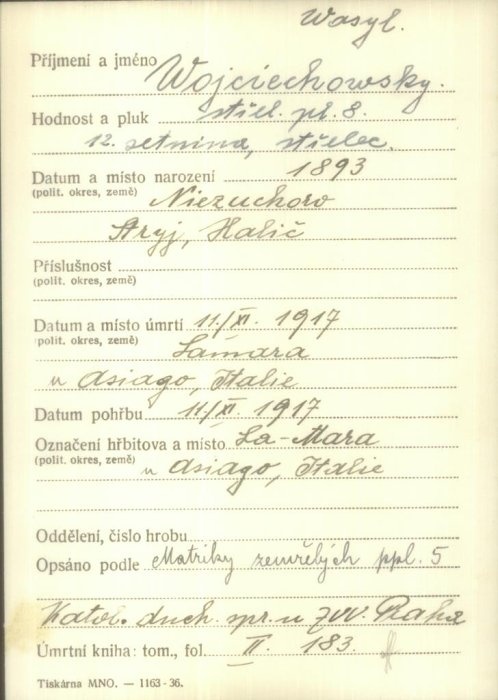 Wasyl.
Příjmení a jméno Wojciechowsky.
Hodnost a pluk střel. pl. 8.
12. setnina, střelec.
Datum a místo narození 1893
(polit. okres, země) Niezuchoro
Stryj, Halič
Příslušnost
(polit. okres, země)
Datum a místo úmrtí 11./XI. 1917
(polit. okres, země) Lamara
u Asiago, Italie
Datum pohřbu 11./XI. 1917
Označení hřbitova a místo La-Mara
(polit. okres, země) u Asiago, Italie
Oddělení, číslo hrobu
Opsáno podle Matriky zemřelých ppl. 5
Katol. duch. spr. u ZVV. Praha
Úmrtní kniha: tom., fol. II. 183.
Tiskárna MNO. — 1163-36.